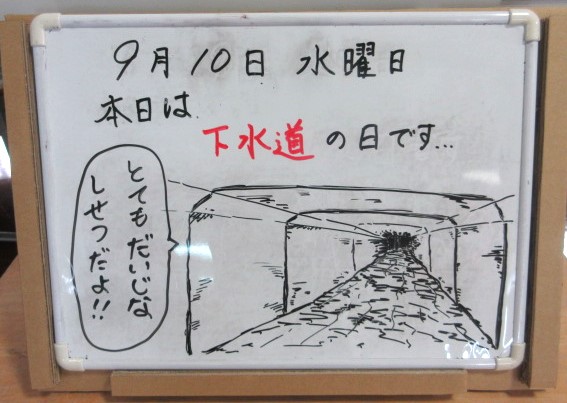 9月10日 水曜日
本日は
下水道の日です...
とてもだいじな
しせつだよ!!